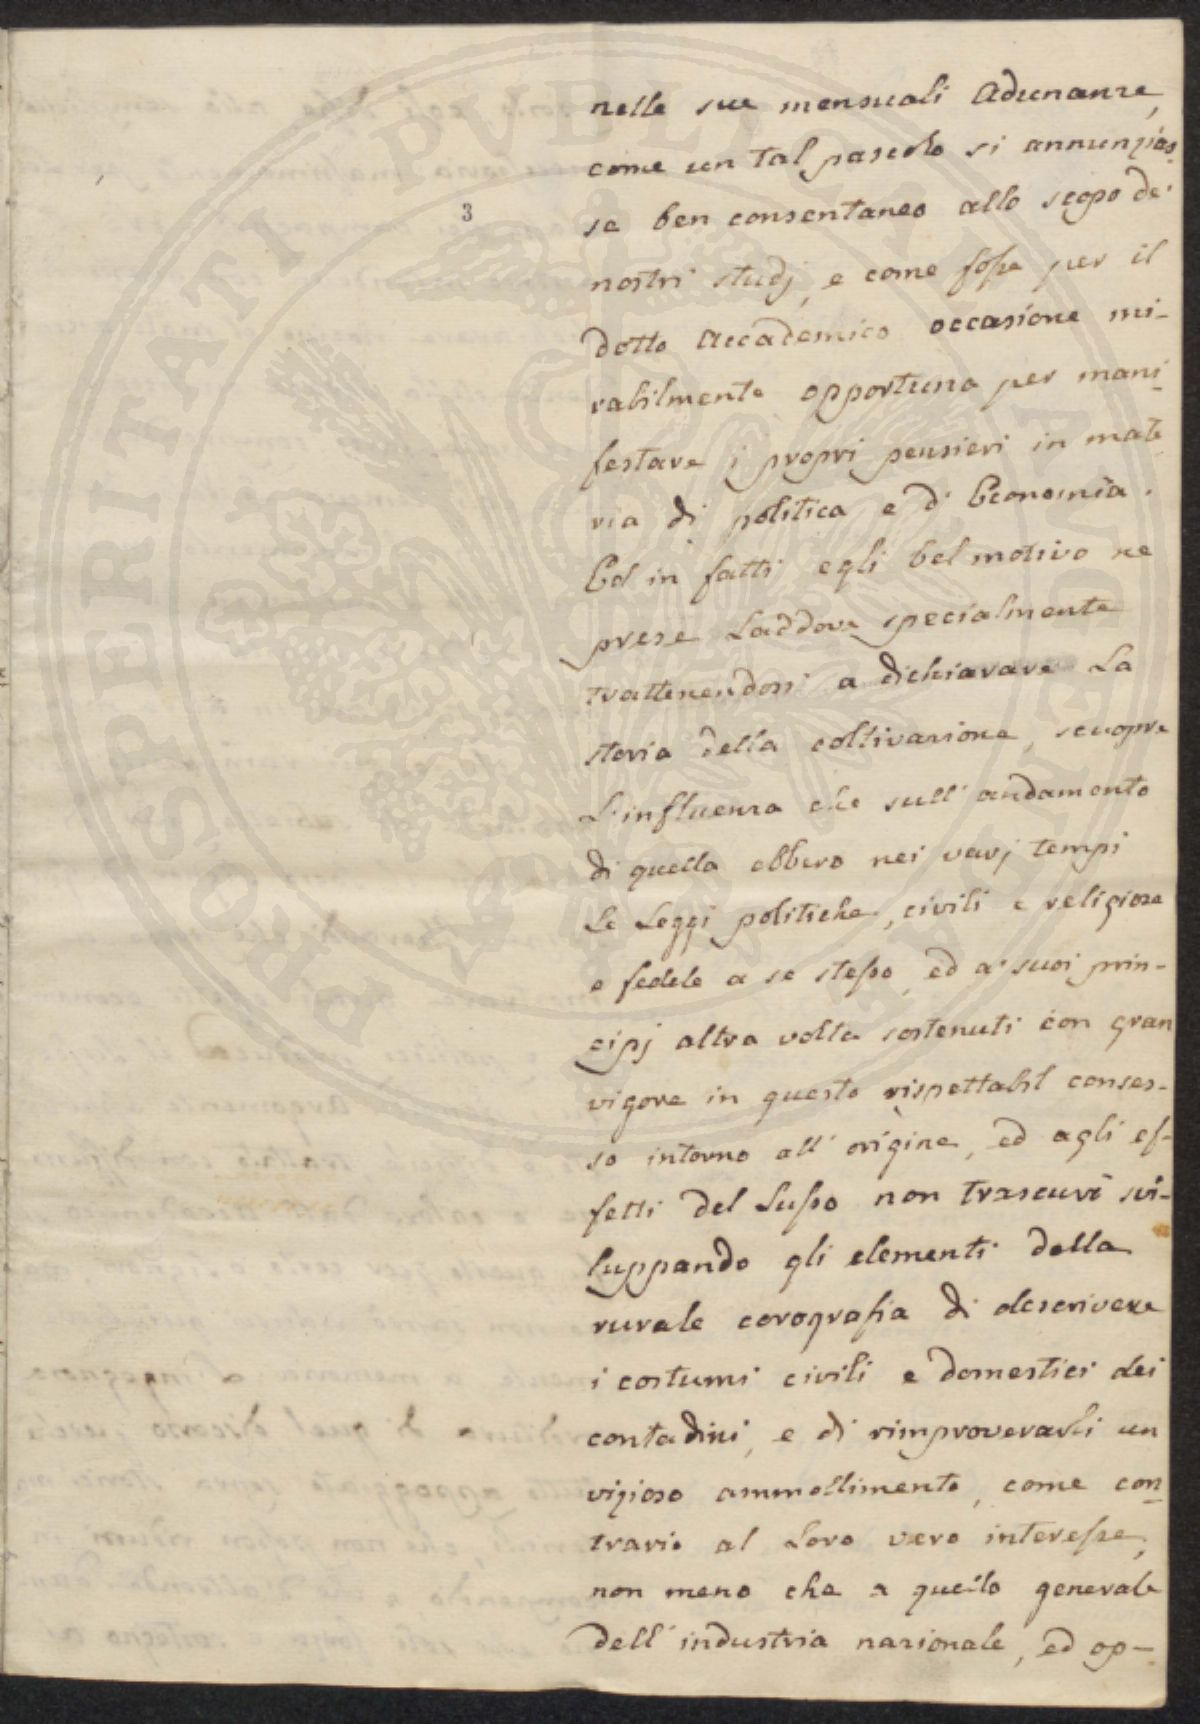 nelle sue mensuali Adunanze,
come un tal pascolo si annunzias-
se ben consentaneo allo scopo de'
3
nostri studj, e come fosse per il
dotto Accademico occasione mi-
rabilmente opportuna per mani-
festare i propri pensieri in mate
ria di politica e d' Economia.
Ed in fatti egli bel motivo ne
prese Laddove specialmente
trattenendosi a dichiarare La
storia della coltivazione, scuopre
L'influenza che sull' andamento
di quella ebbero nei varj tempi
Le Leggi politiche, civili e religiose
e fedele a se stesso, ed a' suoi prin-
cipj altra volta sostenuti con gran
vigore in questo rispettabil conses-
so intorno all' origine, ed agli ef-
fetti del Lusso non trascurò svi-
luppando gli elementi della
rurale corografia di descrivere
i costumi civili e domestici dei
contadini, e di rimproverarli un
vizioso ammollimento, come con-
trario al Loro vero interesse,
non meno che a quello generale
dell' industria nazionale, ed op-
PROSPERITATI PVBLICAE AVGENDAE